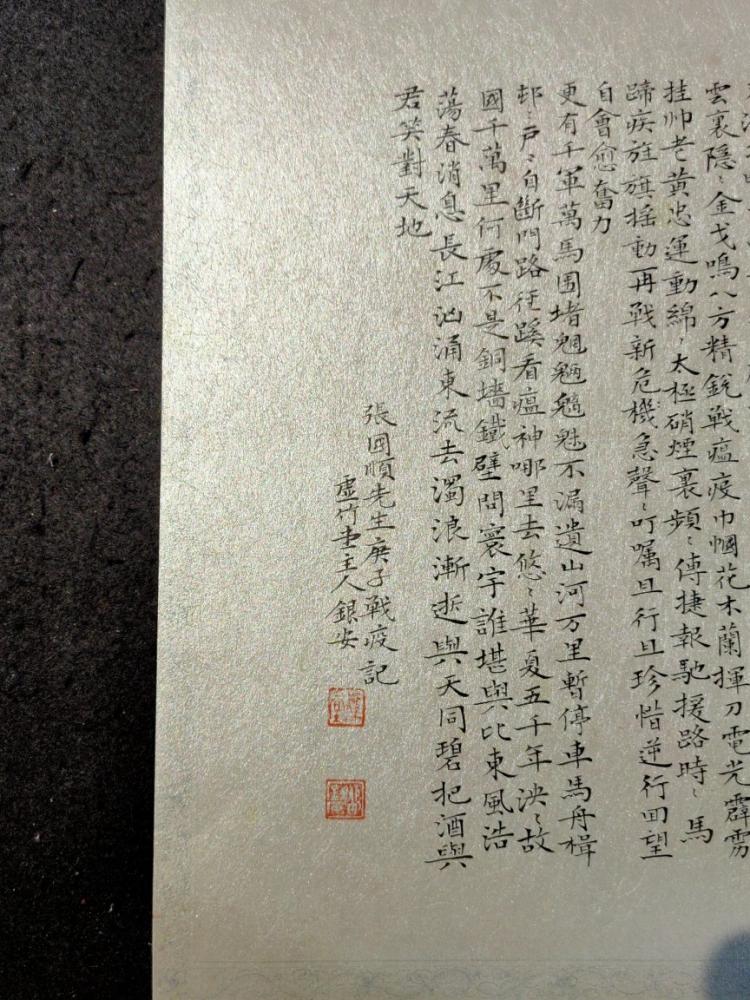 雲裏隱〻金戈鳴八方精銳戰瘟疫巾幗花木蘭揮刀電光霹雳
挂帅老黃忠運動綿〻太極硝煙裏頻〻傳捷報馳援路時〻馬
蹄疾旌旗摇動再戰新危機急聲〻叮嘱且行且珍惜逆行回望
自會愈奮力
更有千軍萬馬围堵魍魉魑魅不漏遺山河万里暫停車馬舟楫
邨〻戸〻自斷門路径蹊看瘟神哪里去悠〻華夏五千年泱〻故
國千萬里何處不是銅墻鐵壁問寰宇誰堪與比東風浩
蕩春消息長江汹涌東流去濁浪漸逝與天同碧把酒與
君笑對天地
張国順先生庚子戰疫記
虛竹堂主人銀安